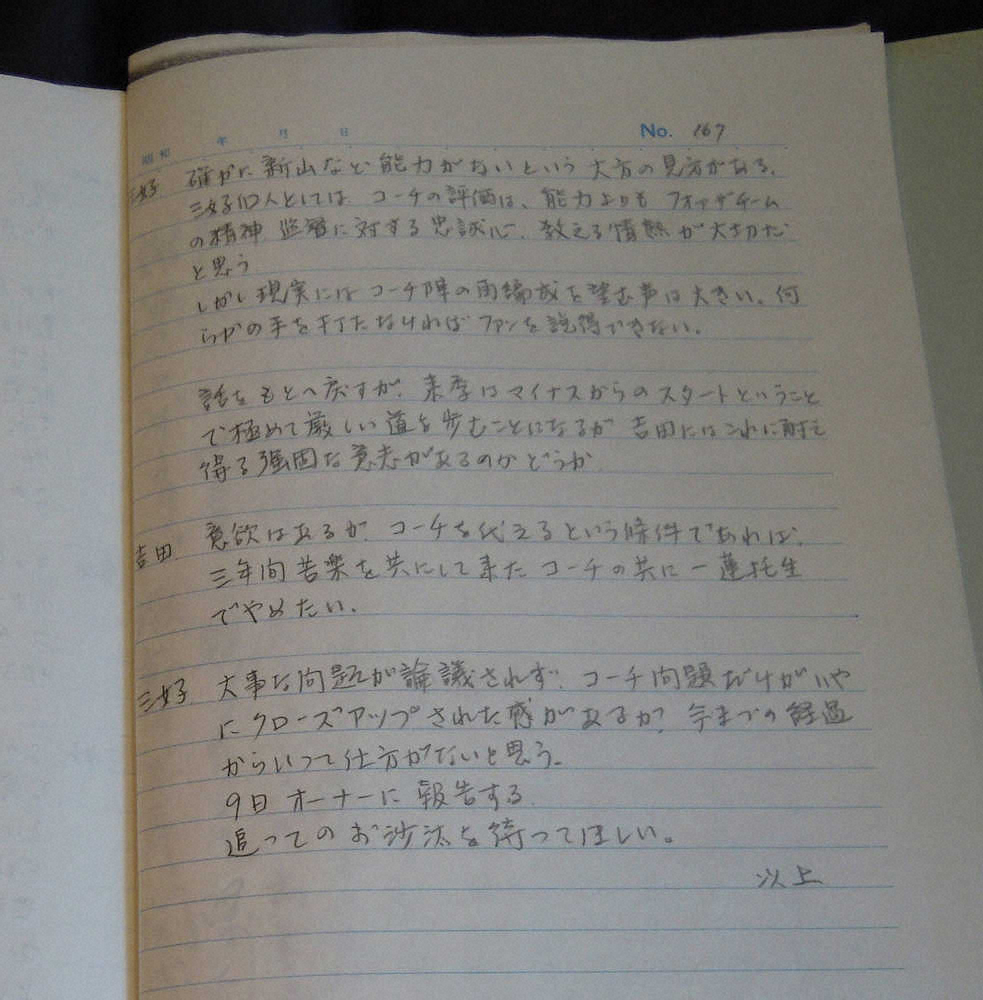 昭和　年　月　日　No. 167
三好　確かに新山など能力がないという大方の見方がある。
三好個人としては、コーチの評価は、能力よりも フォアザチーム
の精神 監督に対する忠誠心、教える情熱が大切だ
と思う
しかし現実にはコーチ陣の再編成を望む声は大きい。何
らかの手を打たなければファンを説得できない。
話をもとへ戻すが、来季はマイナスからのスタートということ
で極めて厳しい道を歩むことになるが 吉田にはこれに耐え
得る強固な意志があるのかどうか
吉田　意欲はあるが、コーチを代えるという條件であれば、
三年間苦楽を共にして来たコーチの共に一蓮托生
でやめたい。
三好　大事な問題が論議されず、コーチ問題だけがいや
にクローズアップされた感があるが、今までの経過
からいって仕方がないと思う。
9日オーナーに報告する
追ってのお沙汰を待ってほしい。
以上